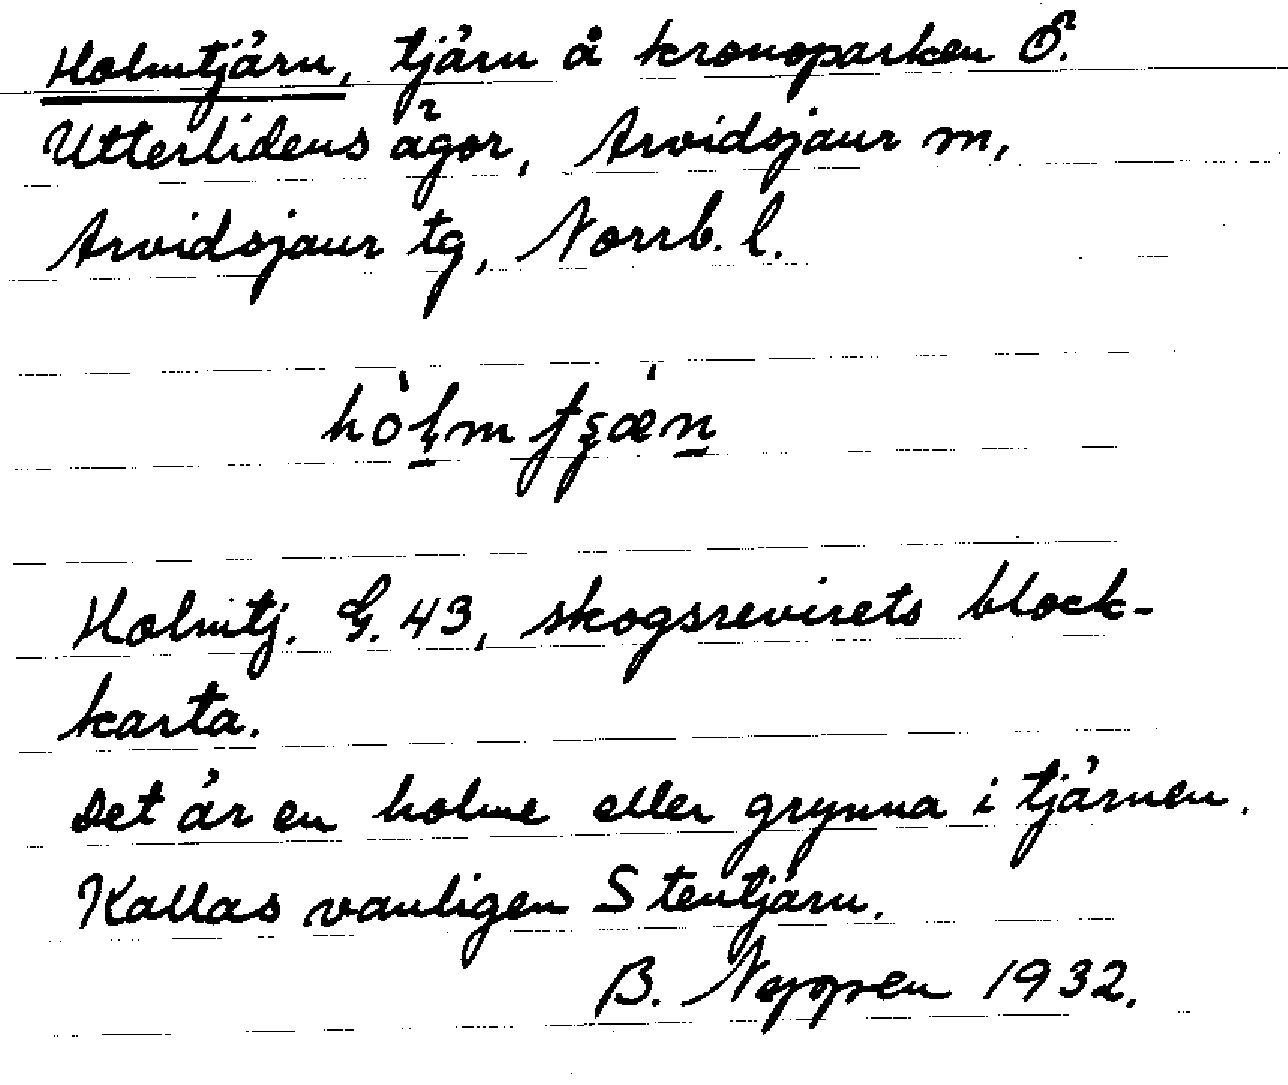 Holmtjärn, tjärn å kronoparken Ö.
Utterlidens ägor, Arvidsjaur m,
Arvidsjaur tg, Norrb. l.
Holmtj. G. 43, skogsrevirets block-
karta.
Det är en holme eller grynna i tjärnen.
Kallas vanligen Stentjärn.
B. Neppen 1932.